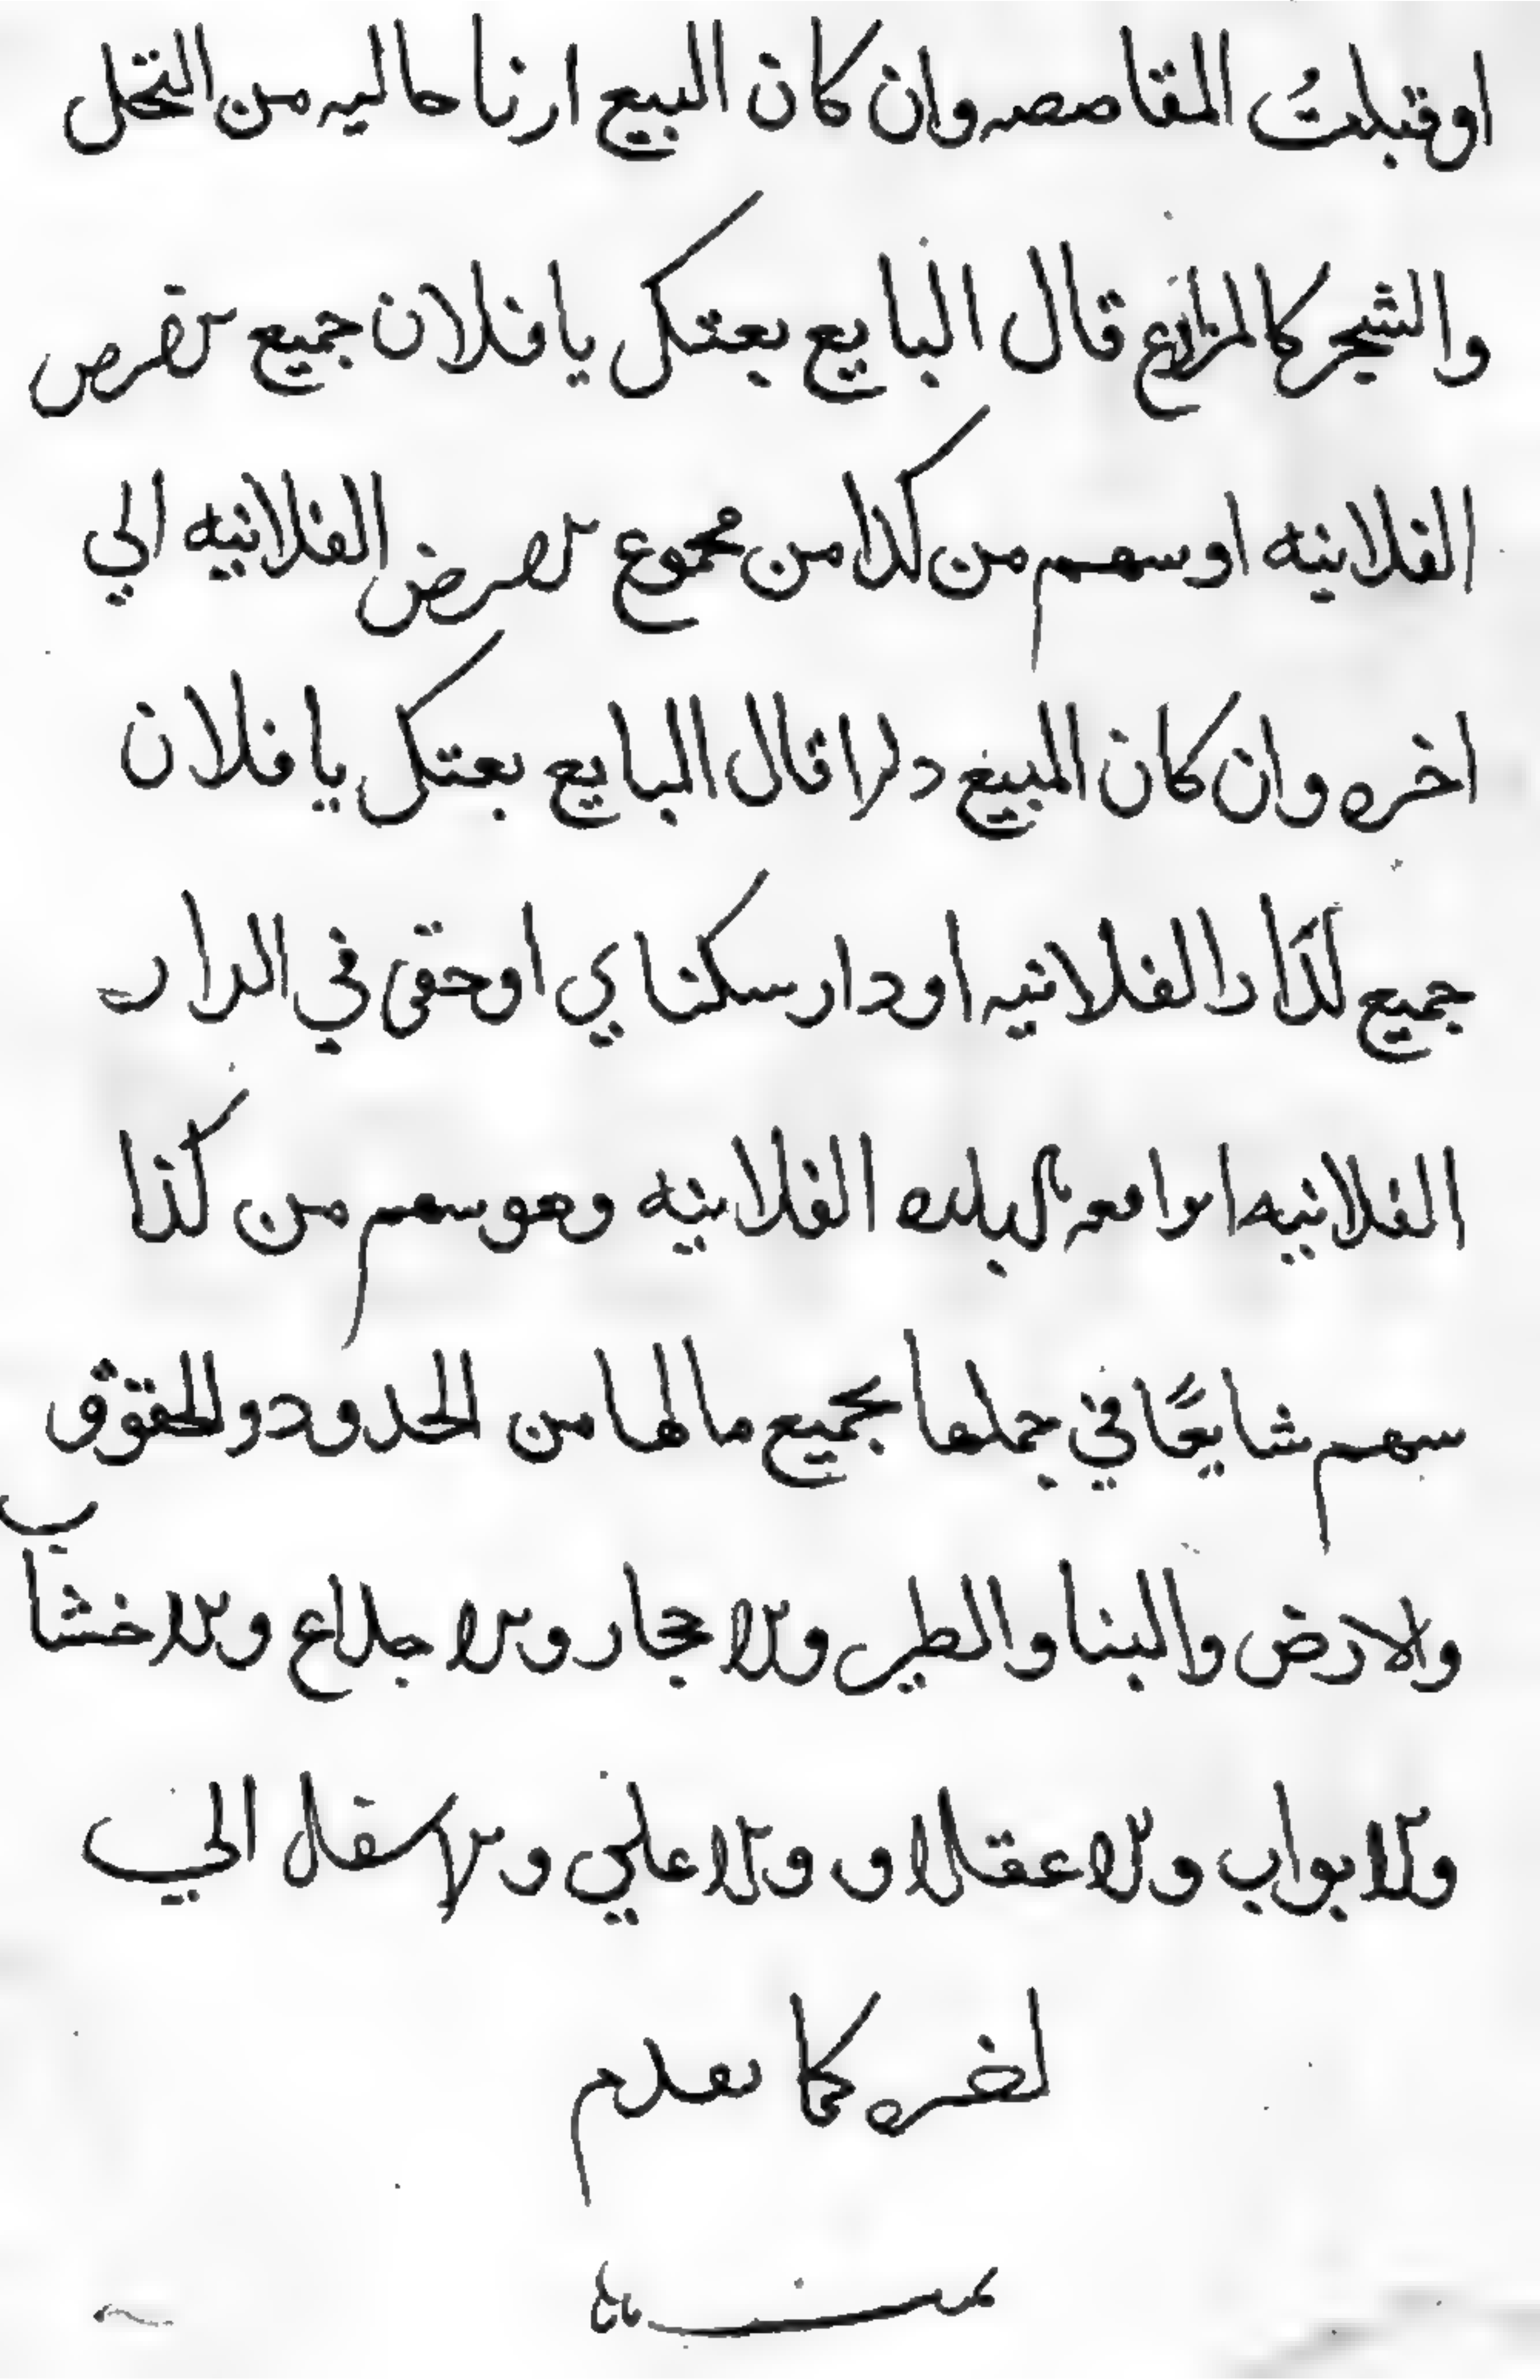 اوقبلتُ المقاصصه وان كان البيع ارنا حاليه من النخل
والشجر كالمزارع قال البايع بعتكل يا فلان جميع الارض
الفلانيه او سهم من كذا من مجموع الارض الفلانيه الي
اخره وان كان المبيع دارا قال البايع بعتكل يا فلان
جميع لدار الفلانيه او دار سكناي او حقي في الدار
الفلانيه الواقعه بالبلده الفلانيه وهو سهم من كذا
سهم شايعًا في جملها بجميع مالها من الحدود والحقوق
والارض والبنا والطير والاحجار والاجداع والاخشاب
والابواب والاعقالاو والاعلي والاسفل الي
لخره كما تقدم